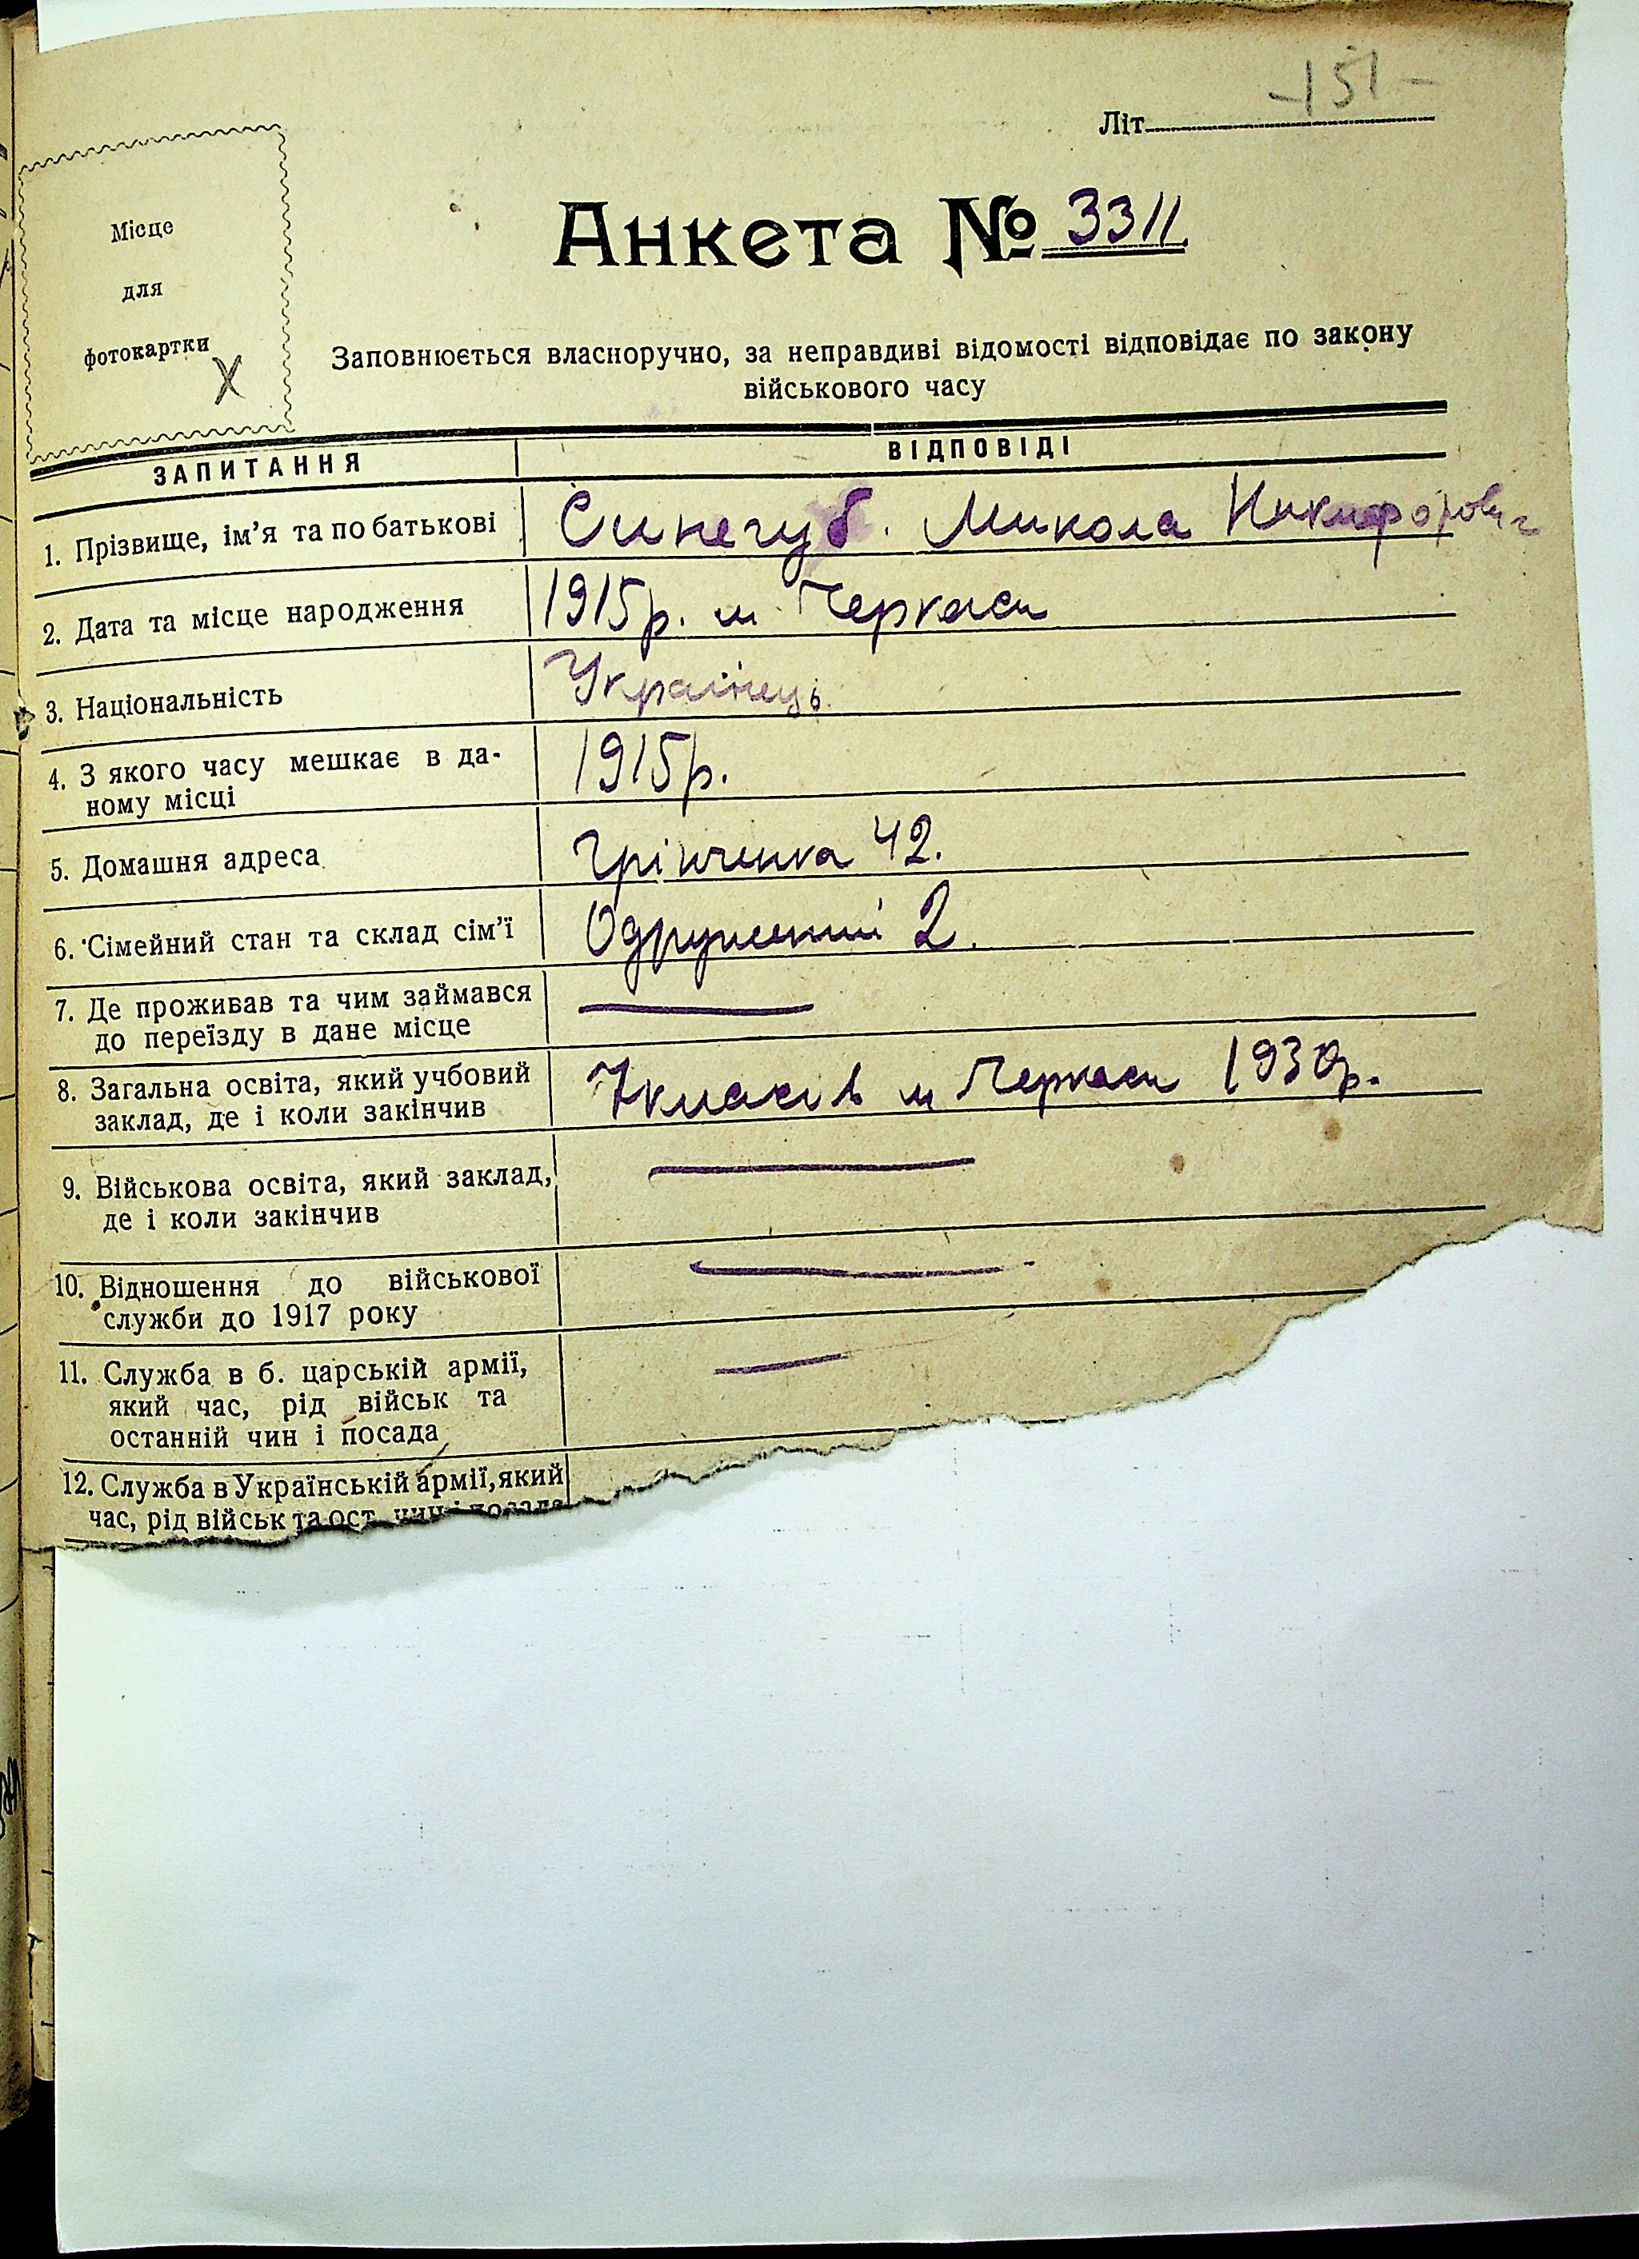 -151-
Літ
Місце
для
фотокартки
X
Анкета № 3311.
Заповнюється власноручно, за неправдиві відомості відповідає по закону
військового часу
ЗАПИТАННЯ ВІДПОВІДІ
1. Прізвище, ім'я та по батькові Синегуб. Микола Никифорович
2. Дата та місце народження 1915р. м. Черкаси
3. Національність Українець.
4. З якого часу мешкає в да-
ному місці 1915р.
5. Домашня адреса Грінченка 42.
6. Сімейний стан та склад сім'ї Одружений 2.
7. Де проживав та чим займався
до переїзду в дане місце
8. Загальна освіта, який учбовий
заклад, де і коли закінчив 7класів м Черкаси 1930р.
9. Військова освіта, який заклад,
де і коли закінчив
10. Відношення до військової
служби до 1917 року
11. Служба в б. царській армії,
який час, рід військ та
останній чин і посада
12. Служба в Українській армії, який
час, рід військ та ост. чин і посада